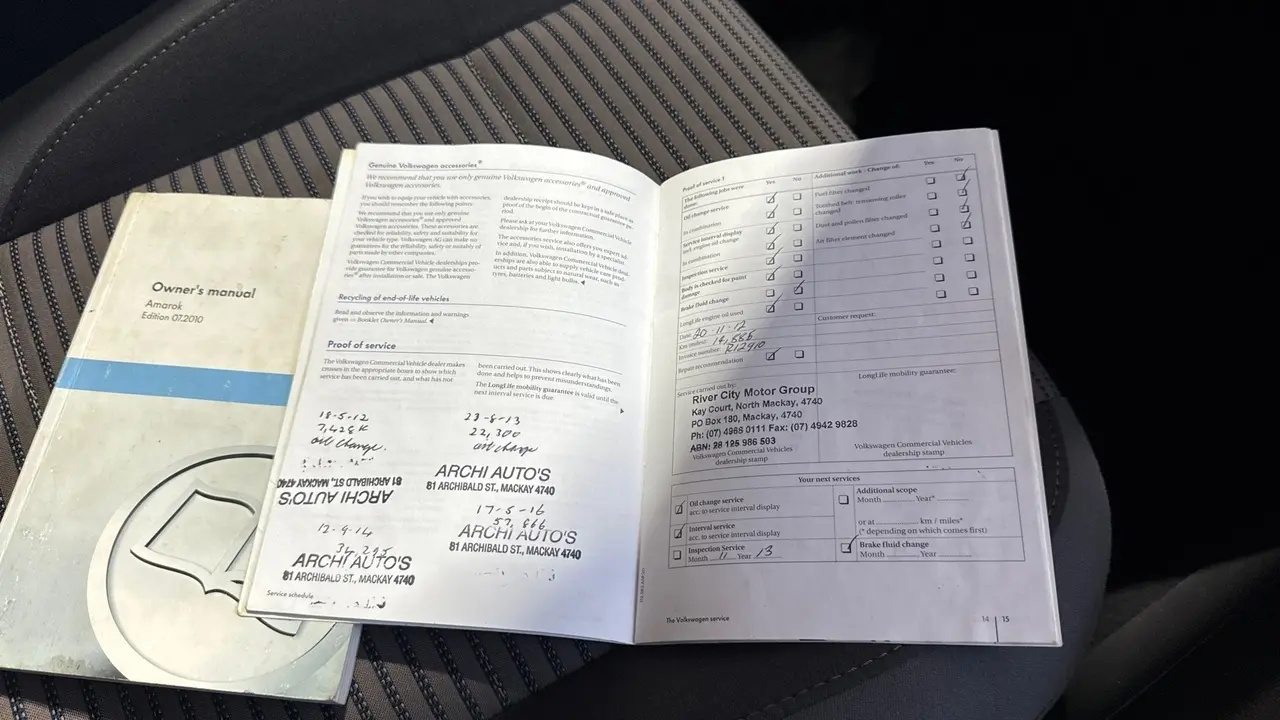 Owner's manual
Amarok
Edition 07.2010
Genuine Volkswagen accessories®
We recommend that you use only genuine Volkswagen accessories® and approved
Volkswagen accessories.
If you wish to equip your vehicle with accessories,
you should remember the following points:
We recommend that you use only genuine
Volkswagen accessories® and approved
Volkswagen accessories. These accessories are
checked for reliability, safety and suitability for
your vehicle type. Volkswagen AG can make no
guarantees for the reliability, safety or suitability of
parts made by other companies.
Volkswagen Commercial Vehicle dealerships pro-
vide guarantee for Volkswagen genuine accesso-
ries® after installation or sale. The Volkswagen
dealership receipt should be kept in a safe place as
proof of the begin of the contractual guarantee pe-
riod.
Please ask at your Volkswagen Commercial Vehicle
dealership for further information.
The accessories service also offers you expert ad-
vice and, if you wish, installation by a specialist.
In addition, Volkswagen Commercial Vehicle deal-
erships are also able to supply vehicle care prod-
ucts and parts subject to natural wear, such as
tyres, batteries and light bulbs.
Recycling of end-of-life vehicles
Read and observe the information and warnings
given in Booklet Owner's Manual.
Proof of service
The Volkswagen Commercial Vehicle dealer makes
crosses in the appropriate boxes to show which
service has been carried out, and what has not
been carried out. This shows clearly what has been
done and helps to prevent misunderstandings.
The LongLife mobility guarantee is valid until the
next interval service is due.
18-5-12
7,428 K
oil change.
ARCHI AUTO'S
81 ARCHIBALD ST., MACKAY 4740
28-8-13
22,300
oil change
ARCHI AUTO'S
81 ARCHIBALD ST., MACKAY 4740
12-9-14
ARCHI AUTO'S
81 ARCHIBALD ST., MACKAY 4740
17-5-16
57,866
ARCHI AUTO'S
81 ARCHIBALD ST., MACKAY 4740
Service schedule
Proof of service 1
The following jobs were
done:
Yes No
Oil change service
In combination
Service interval display
incl. engine oil change
In combination
Inspection service
Body is checked for paint
damage
Brake fluid change
LongLife engine oil used
Date: 20-11-12
Km (miles): 14,586
Invoice number: R12910
Repair recommendation
Additional work - Change of:
Yes No
Fuel filter changed
Toothed belt
changed
Dust and pollen filter changed
Air filter element changed
Customer request:
Service carried out by:
River City Motor Group
Kay Court, North Mackay, 4740
PO Box 180, Mackay, 4740
Ph: (07) 4968 0111 Fax: (07) 4942 9828
ABN: 28 125 986 503
Volkswagen Commercial Vehicles
dealership stamp
LongLife mobility guarantee:
Volkswagen Commercial Vehicles
dealership stamp
Your next services
Oil change service
acc. to service interval display
Interval service
acc. to service interval display
Inspection Service
Month 11 Year 13
Additional scope
Month Year*
or at km / miles*
(* depending on which comes first)
Brake fluid change
Month Year
The Volkswagen service
14 15